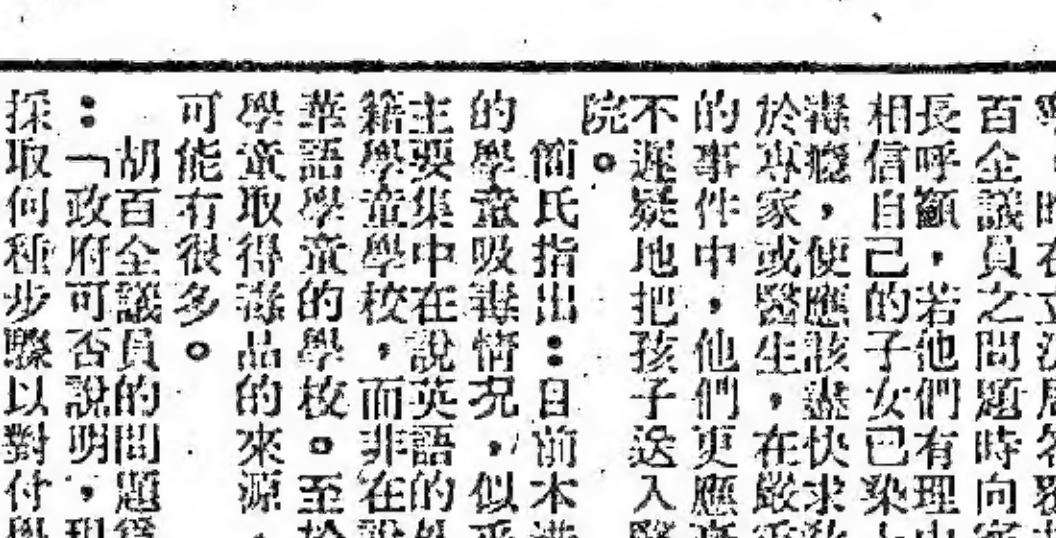 百全議員之問題時向
長呼籲，若他們有理
相信自己的子女已染
毒癮，便應該盡快求
於專家或醫生，在嚴
的事件中，他們更應
不遲疑地把孩子送入
院。
簡氏指出：目前本
的學童吸毒情况，似
主要集中在說英語的
籍學童學校，而非在
華語學童的學校。至
學童取得毒品的來源
可能有很多。
胡百全議員的問題
：「政府可否說明，
採取何種步驟以對付